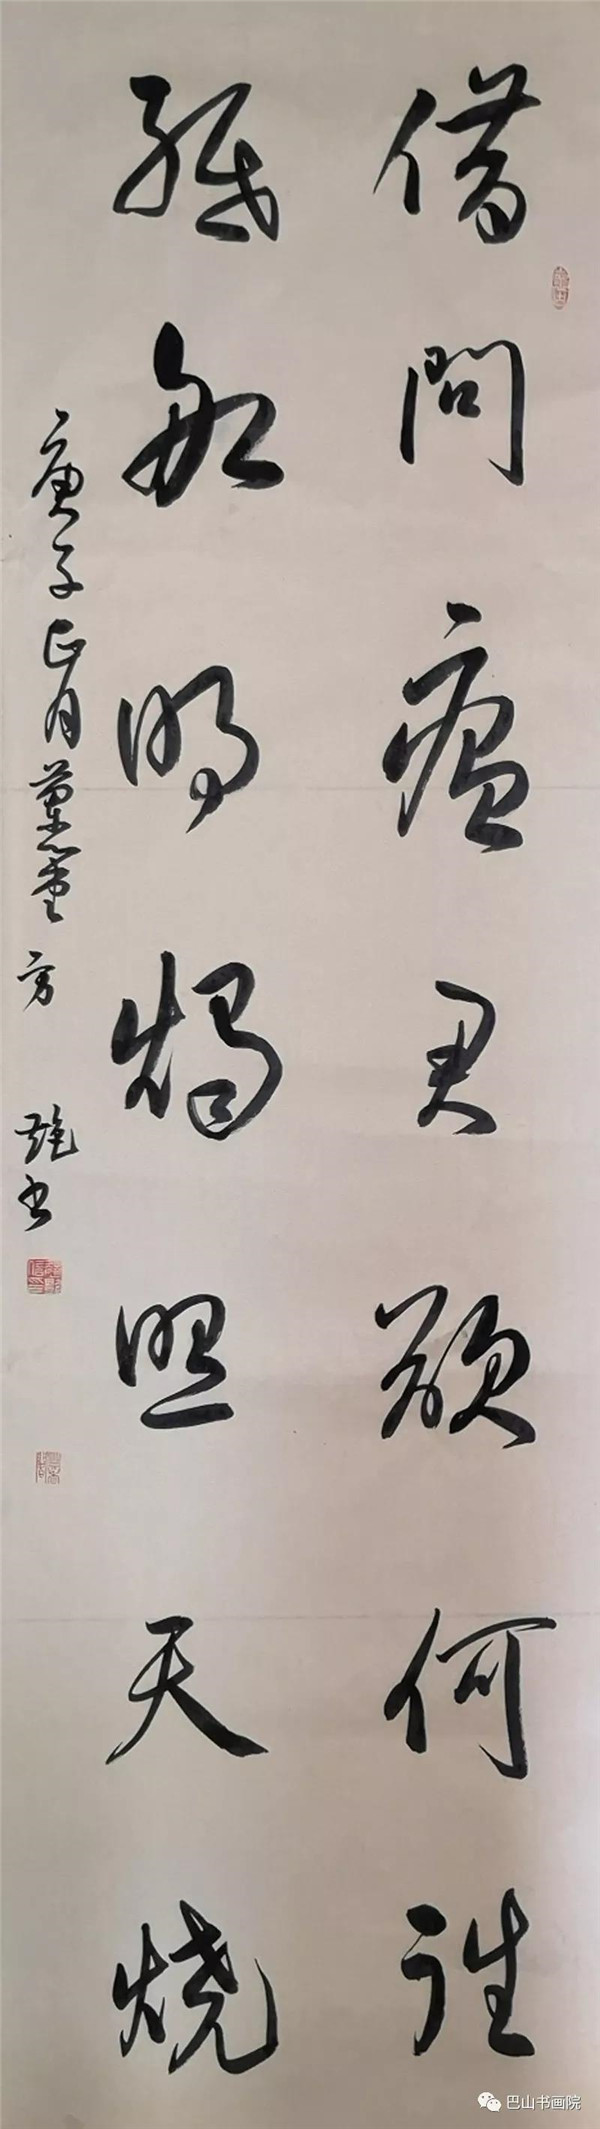 借问瘟君欲何往
纸船明烛照天烧
庚子正月兰堂 方艳书
巴山书画院